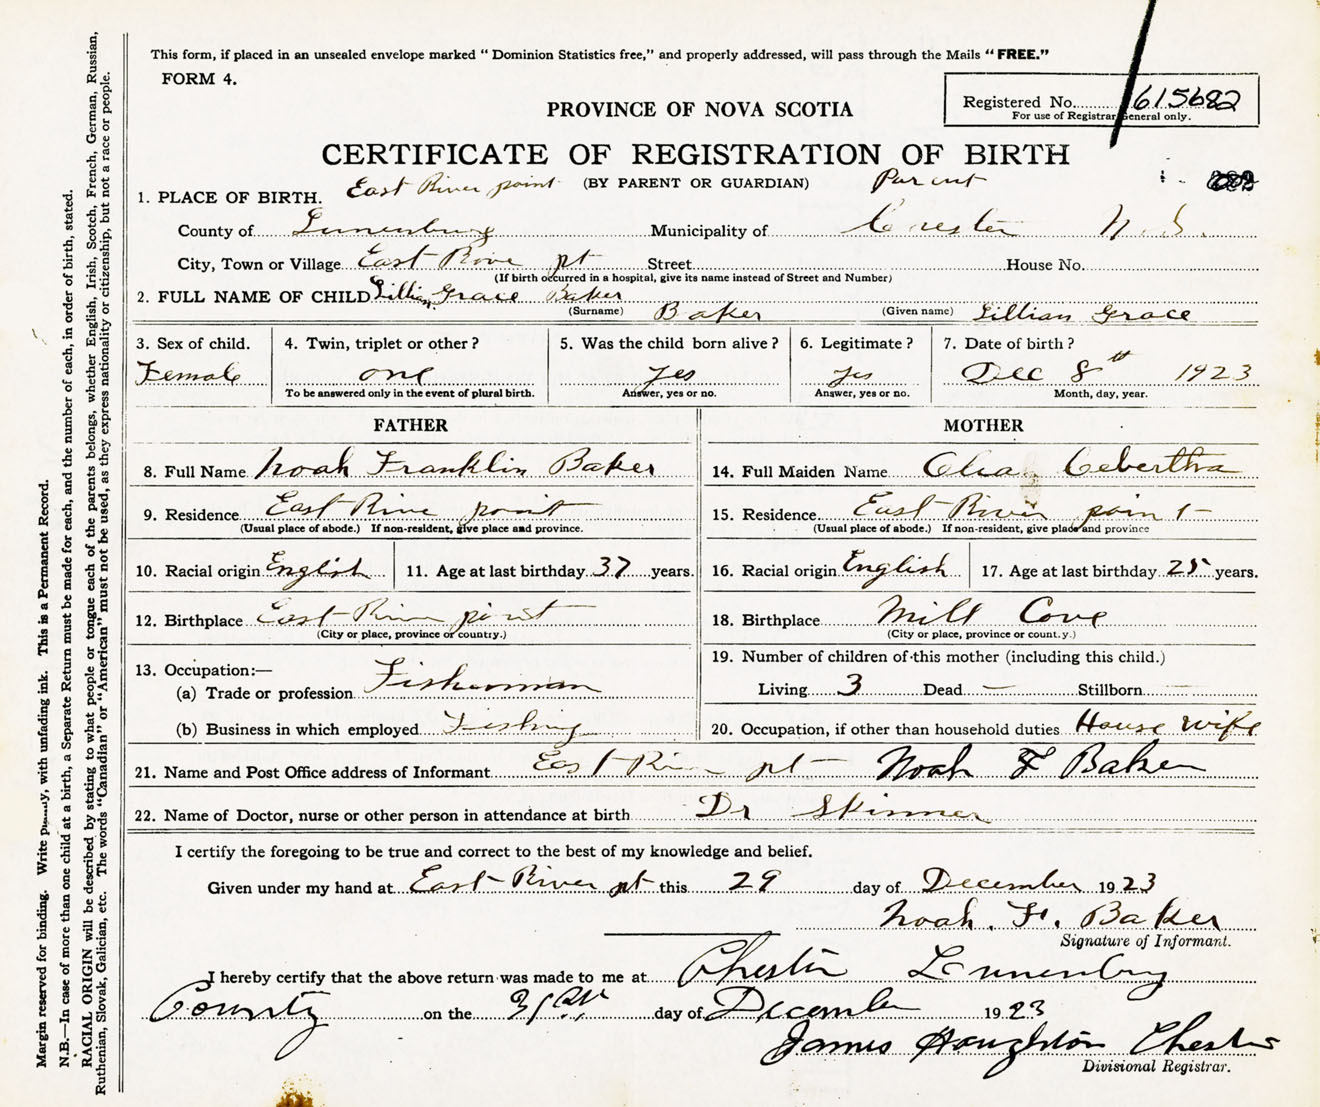 This form, if placed in an unsealed envelope marked "Dominion Statistics free," and properly addressed, will pass through the Mails "FREE."
FORM 4.
Registered No. 615682
For use of Registrar General only.
PROVINCE OF NOVA SCOTIA
CERTIFICATE OF REGISTRATION OF BIRTH
(BY PARENT OR GUARDIAN) Parent
1. PLACE OF BIRTH. East River point
County of Lunenburg Municipality of Chester N.S.
City, Town or Village East River pt Street House No.
(If birth occurred in a hospital, give its name instead of Street and Number)
2. FULL NAME OF CHILD Lillian Grace Baker
(Surname) Baker (Given name) Lillian Grace
3. Sex of child. 4. Twin, triplet or other? 5. Was the child born alive? 6. Legitimate? 7. Date of birth?
Female one yes yes Dec 8th 1923
To be answered only in the event of plural birth. Answer, yes or no. Answer, yes or no. Month, day, year.
FATHER MOTHER
8. Full Name Noah Franklin Baker 14. Full Maiden Name
9. Residence East River point 15. Residence East River point
(Usual place of abode.) If non-resident, give place and province. (Usual place of abode.) If non-resident, give place and province
10. Racial origin English 11. Age at last birthday 37 years. 16. Racial origin English 17. Age at last birthday 25 years.
12. Birthplace East River point 18. Birthplace Mill Cove
(City or place, province or country.) (City or place, province or count.y.)
13. Occupation:— 19. Number of children of this mother (including this child.)
(a) Trade or profession Fisherman Living 3 Dead — Stillborn —
(b) Business in which employed Fishing 20. Occupation, if other than household duties House wife
21. Name and Post Office address of Informant East River pt Noah F Baker
22. Name of Doctor, nurse or other person in attendance at birth Dr Skinner
I certify the foregoing to be true and correct to the best of my knowledge and belief.
Given under my hand at East River pt this 29 day of December 1923
Noah. F. Baker
Signature of Informant.
I hereby certify that the above return was made to me at Chester Lunenburg
County on the 31st day of December 1923
James Houghton Chester
Divisional Registrar.
Margin reserved for binding. Write with unfading ink. This is a Permanent Record.
N.B.—In case of more than one child at a birth, a Separate Return must be made for each, and the number of each, in order of birth, stated.
RACIAL ORIGIN will be described by stating to what people or tongue each of the parents belongs, whether English, Irish, Scotch, French, German, Russian,
Ruthenian, Slovak, Galician, etc. The words "Canadian" or "American" must not be used, as they express nationality or citizenship, but not a race or people.